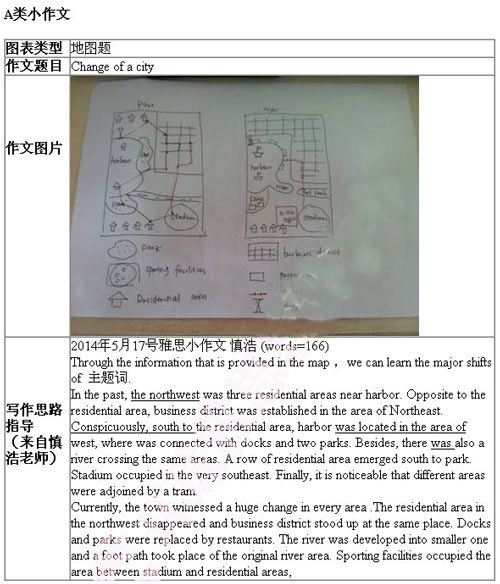 A类小作文
图表类型 地图题
作文题目 Change of a city
作文图片
past
now
harbour
harbour
park
park
stadium
stadium
park
business district
sporting facilities
Residential area
写作思路
指导
（来自慎
浩老师）
2014年5月17号雅思小作文 慎浩 (words=166)
Through the information that is provided in the map ， we can learn the major shifts
of 主题词.
In the past, the northwest was three residential areas near harbor. Opposite to the
residential area, business district was established in the area of Northeast.
Conspicuously, south to the residential area, harbor was located in the area of
west, where was connected with docks and two parks. Besides, there was also a
river crossing the same areas. A row of residential area emerged south to park.
Stadium occupied in the very southeast. Finally, it is noticeable that different areas
were adjoined by a tram.
Currently, the town witnessed a huge change in every area .The residential area in
the northwest disappeared and business district stood up at the same place. Docks
and parks were replaced by restaurants. The river was developed into smaller one
and a foot path took place of the original river area. Sporting facilities occupied the
area between stadium and residential areas,